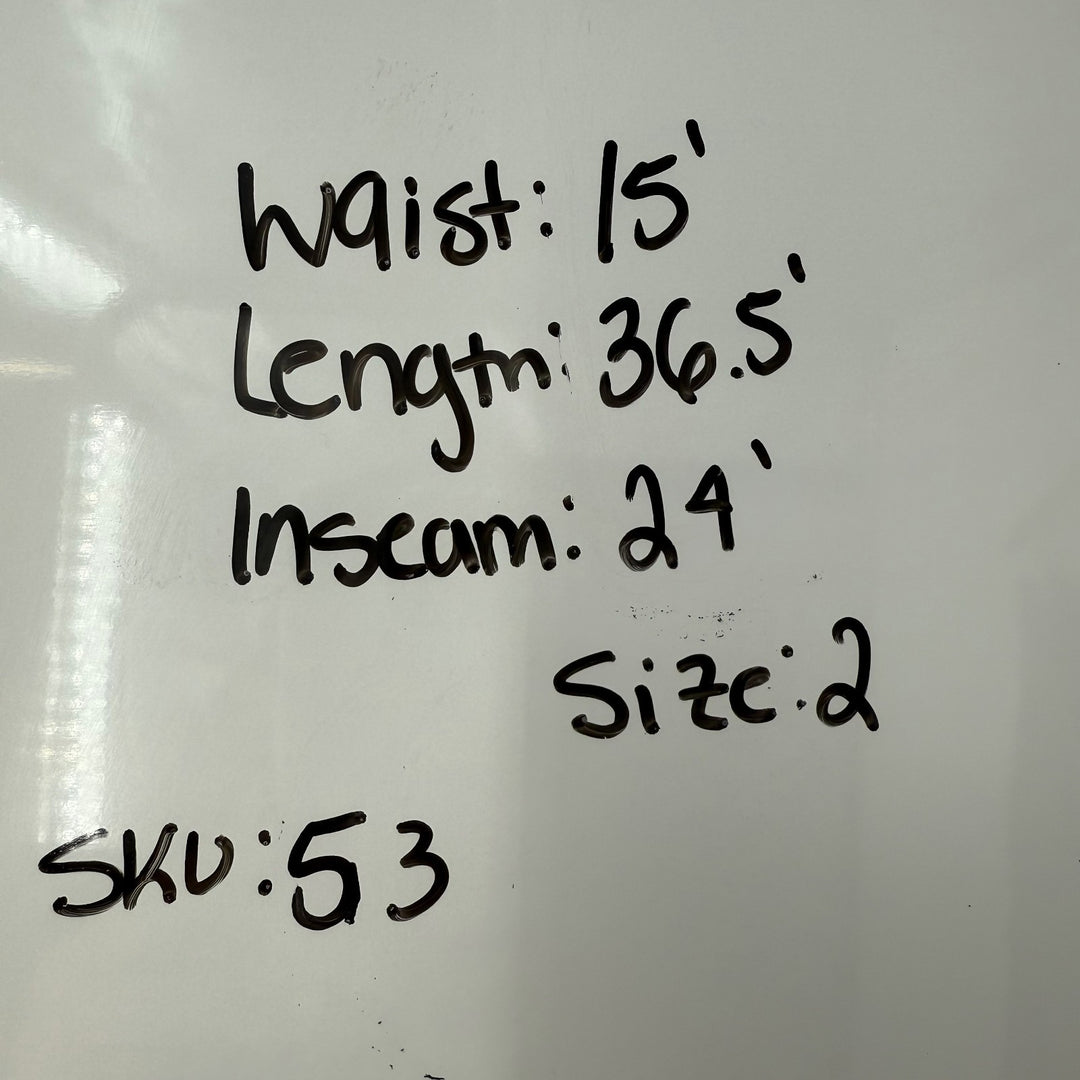 Waist: 15'
Length: 36.5'
Inseam: 24'
Size: 2
SKU: 53